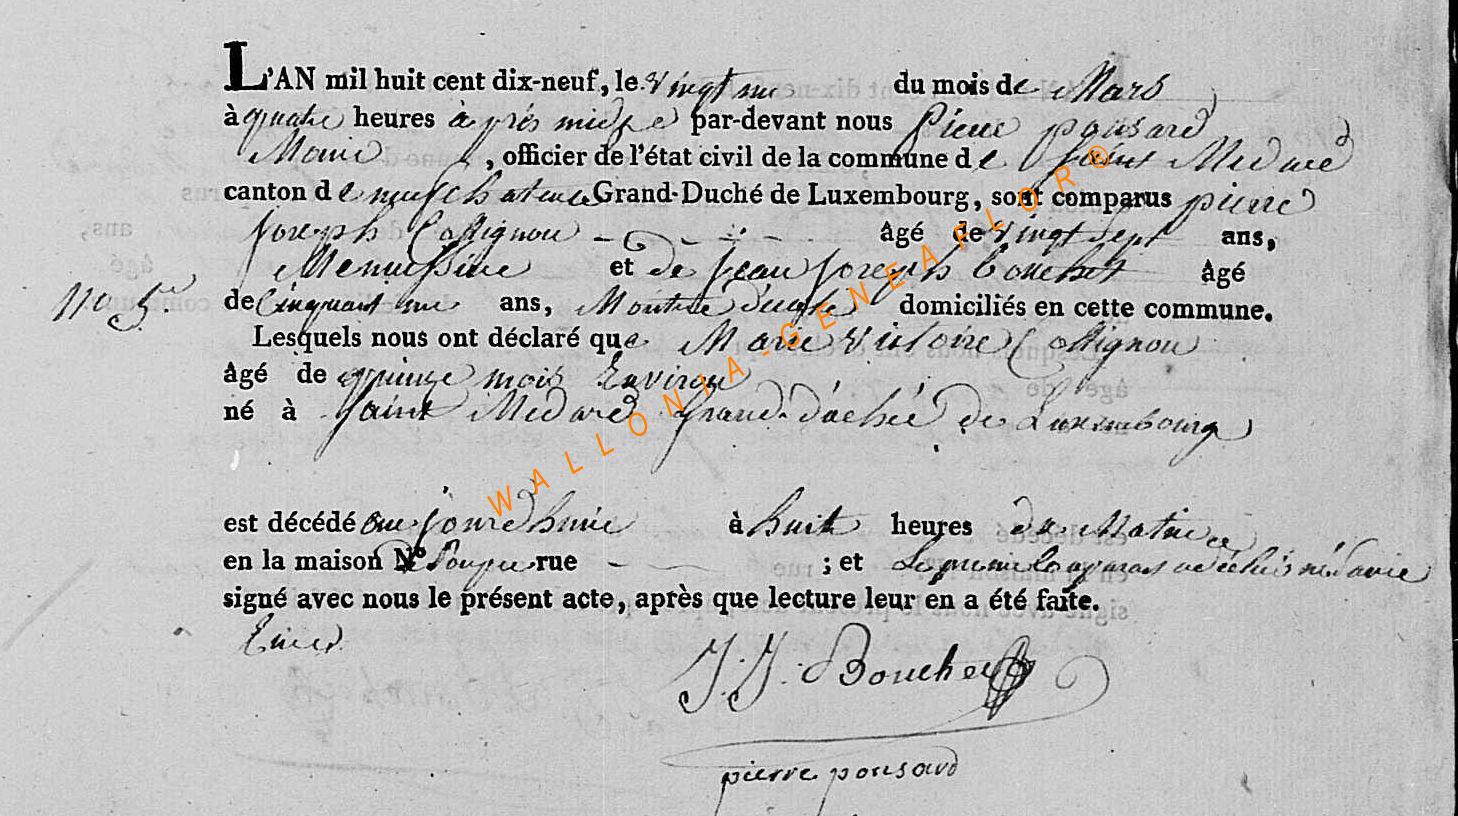 L'AN mil huit cent dix-neuf, le vingt un du mois de Mars
à quatre heures après midy par-devant nous pierre pousard
Maire, officier de l'état civil de la commune de Saint Medard
canton de neufchateau Grand-Duché de Luxembourg, sont comparus pierre
Joseph Collignon âgé de vingt sept ans,
Menuisier et de Jean Joseph Bouchet âgé
no 5.
de Cinquant un ans, domiciliés en cette commune.
Lesquels nous ont déclaré que Marie Victoire Collignon
âgé de quinze mois Environ
né à Saint Medard grand-duché de Luxembourg
est décédé aujourdhuie à huit heures du Matin
en la maison N° rue ; et Le premier
signé avec nous le présent acte, après que lecture leur en a été faite.
J. J. Bouchet
pierre pousard
WALLONIA-GENEAFLOR®